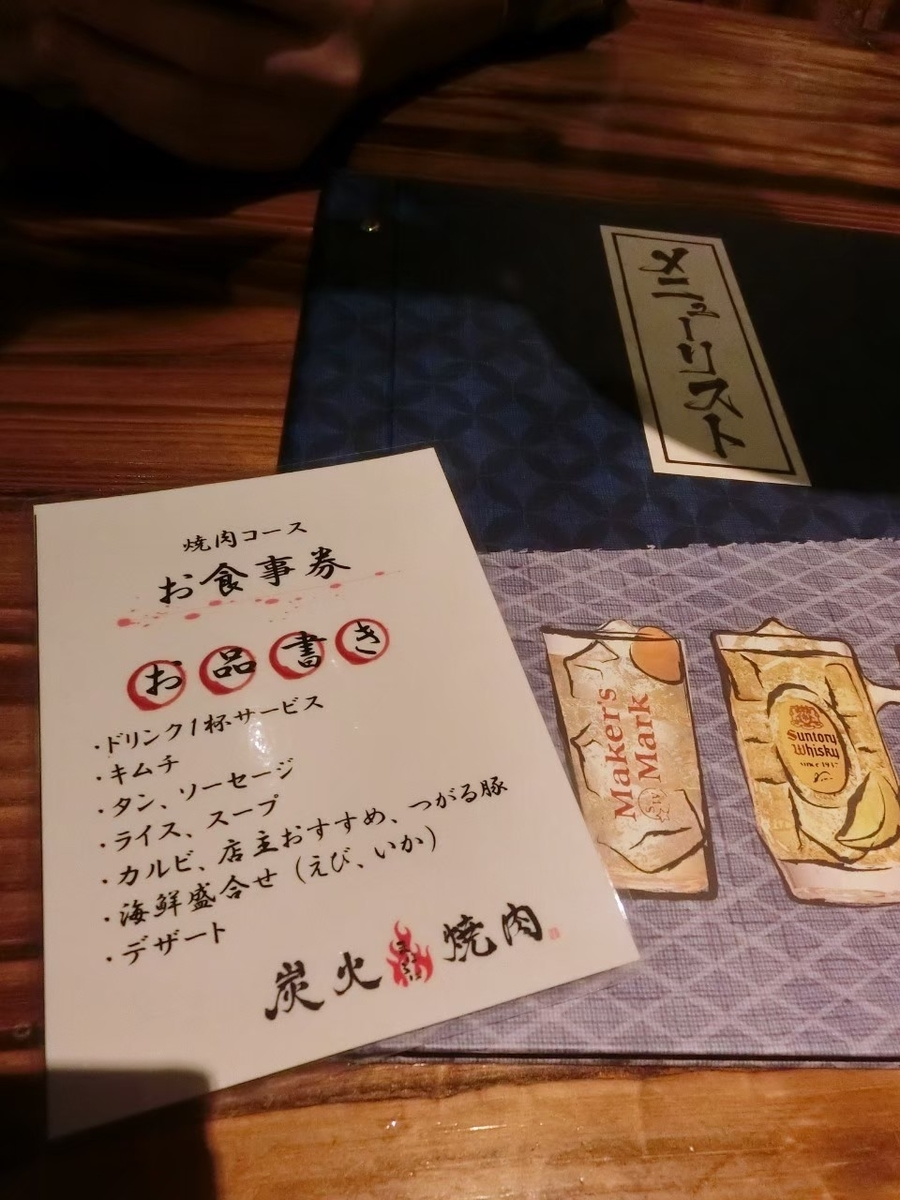 メニューリスト
焼肉コース
お食事券
お品書き
・ドリンク1杯サービス
・キムチ
・タン、ソーセージ
・ライス、スープ
・カルビ、店主おすすめ、つがる豚
・海鮮盛合せ（えび、いか）
・デザート
炭火 焼肉
Maker's
Mark
Suntory
Whisky